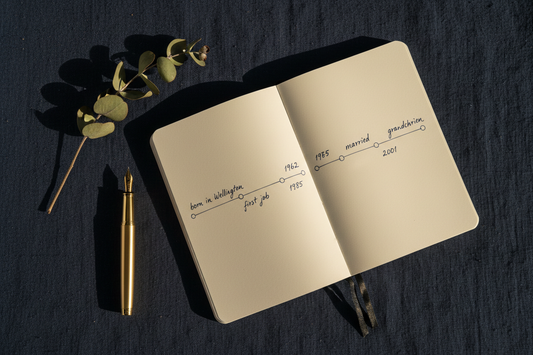 born in Wellington
first job
1962
1985
1985
married
grandchrien
2001